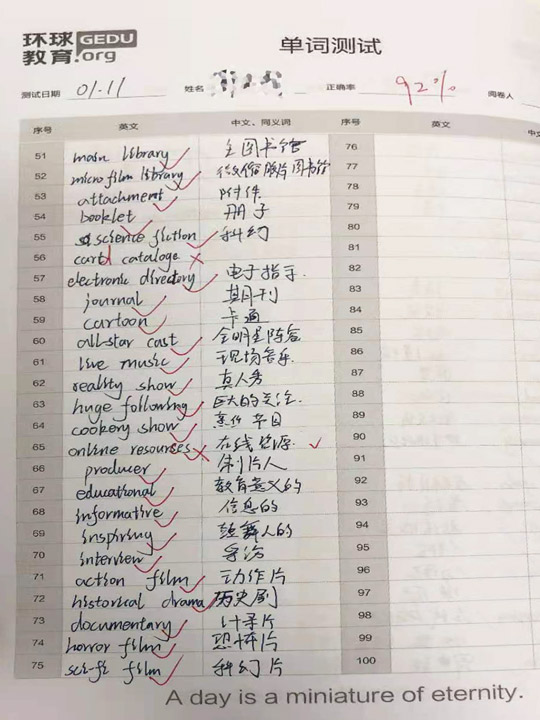 环球 GEDU
教育.org
单词测试
测试日期 01.11 姓名 正确率 92% 阅卷人
序号 英文 中文、同义词 序号 英文
51 main library 主图书馆 76
52 micro film library 微缩胶片图书馆 77
53 attachment 附件 78
54 booklet 册子 79
55 science fiction 科幻 80
56 card cataloge 81
57 electronic directory 电子指示 82
58 journal 期刊 83
59 cartoon 卡通 84
60 all-star cast 全明星阵容 85
61 live music 现场音乐 86
62 reality show 真人秀 87
63 huge following 巨大的关注 88
64 cookery show 烹饪节目 89
65 online resourses 在线资源 90
66 producer 制片人 91
67 educational 教育意义的 92
68 informative 信息的 93
69 inspiring 鼓舞人的 94
70 interview 95
71 action film 动作片 96
72 historical drama 历史剧 97
73 documentary 纪录片 98
74 horror film 恐怖片 99
75 sci-fi film 科幻片 100
A day is a miniature of eternity.